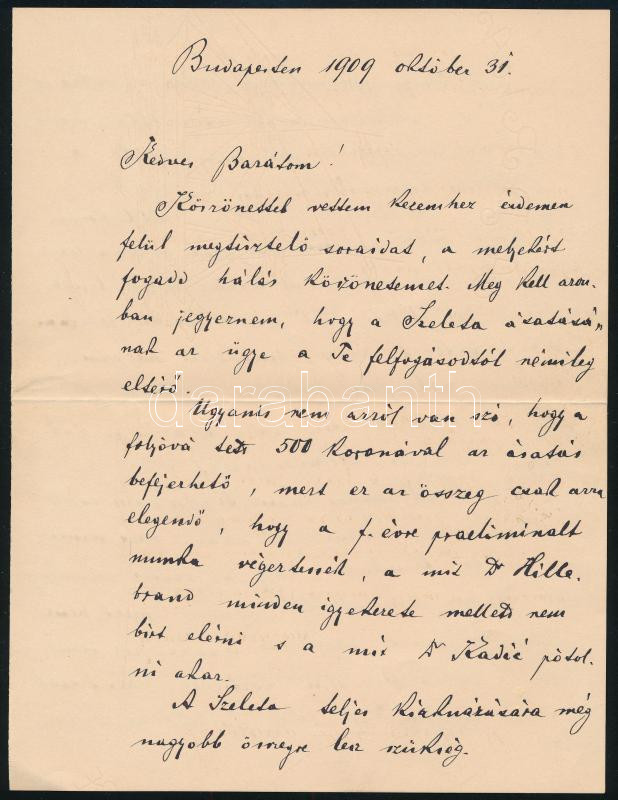 Budapesten 1909 október 31.
Kedves Barátom!
Köszönettel vettem kezemhez érdemen
felül megtisztelő soraidat, a melyekért
fogadd hálás köszönetemet. Meg kell azon-
ban jegyeznem, hogy a Szeleta ásatásá-
nak az ügye a Te felfogásodtól némileg
eltérő.
Ugyanis nem arról van szó, hogy a
folyóvá tett 500 koronával az ásatás
befejezhető, mert ez az összeg csak arra
elegendő, hogy a f. évre praeliminált
munka végeztessék, a mit Dr Hille-
brand minden igyekezete mellett nem
birt elérni s a mit Dr Kadić pótol-
ni akar.
A Szeleta teljes kiaknázására még
nagyobb összegre lesz szükség.
darabanth